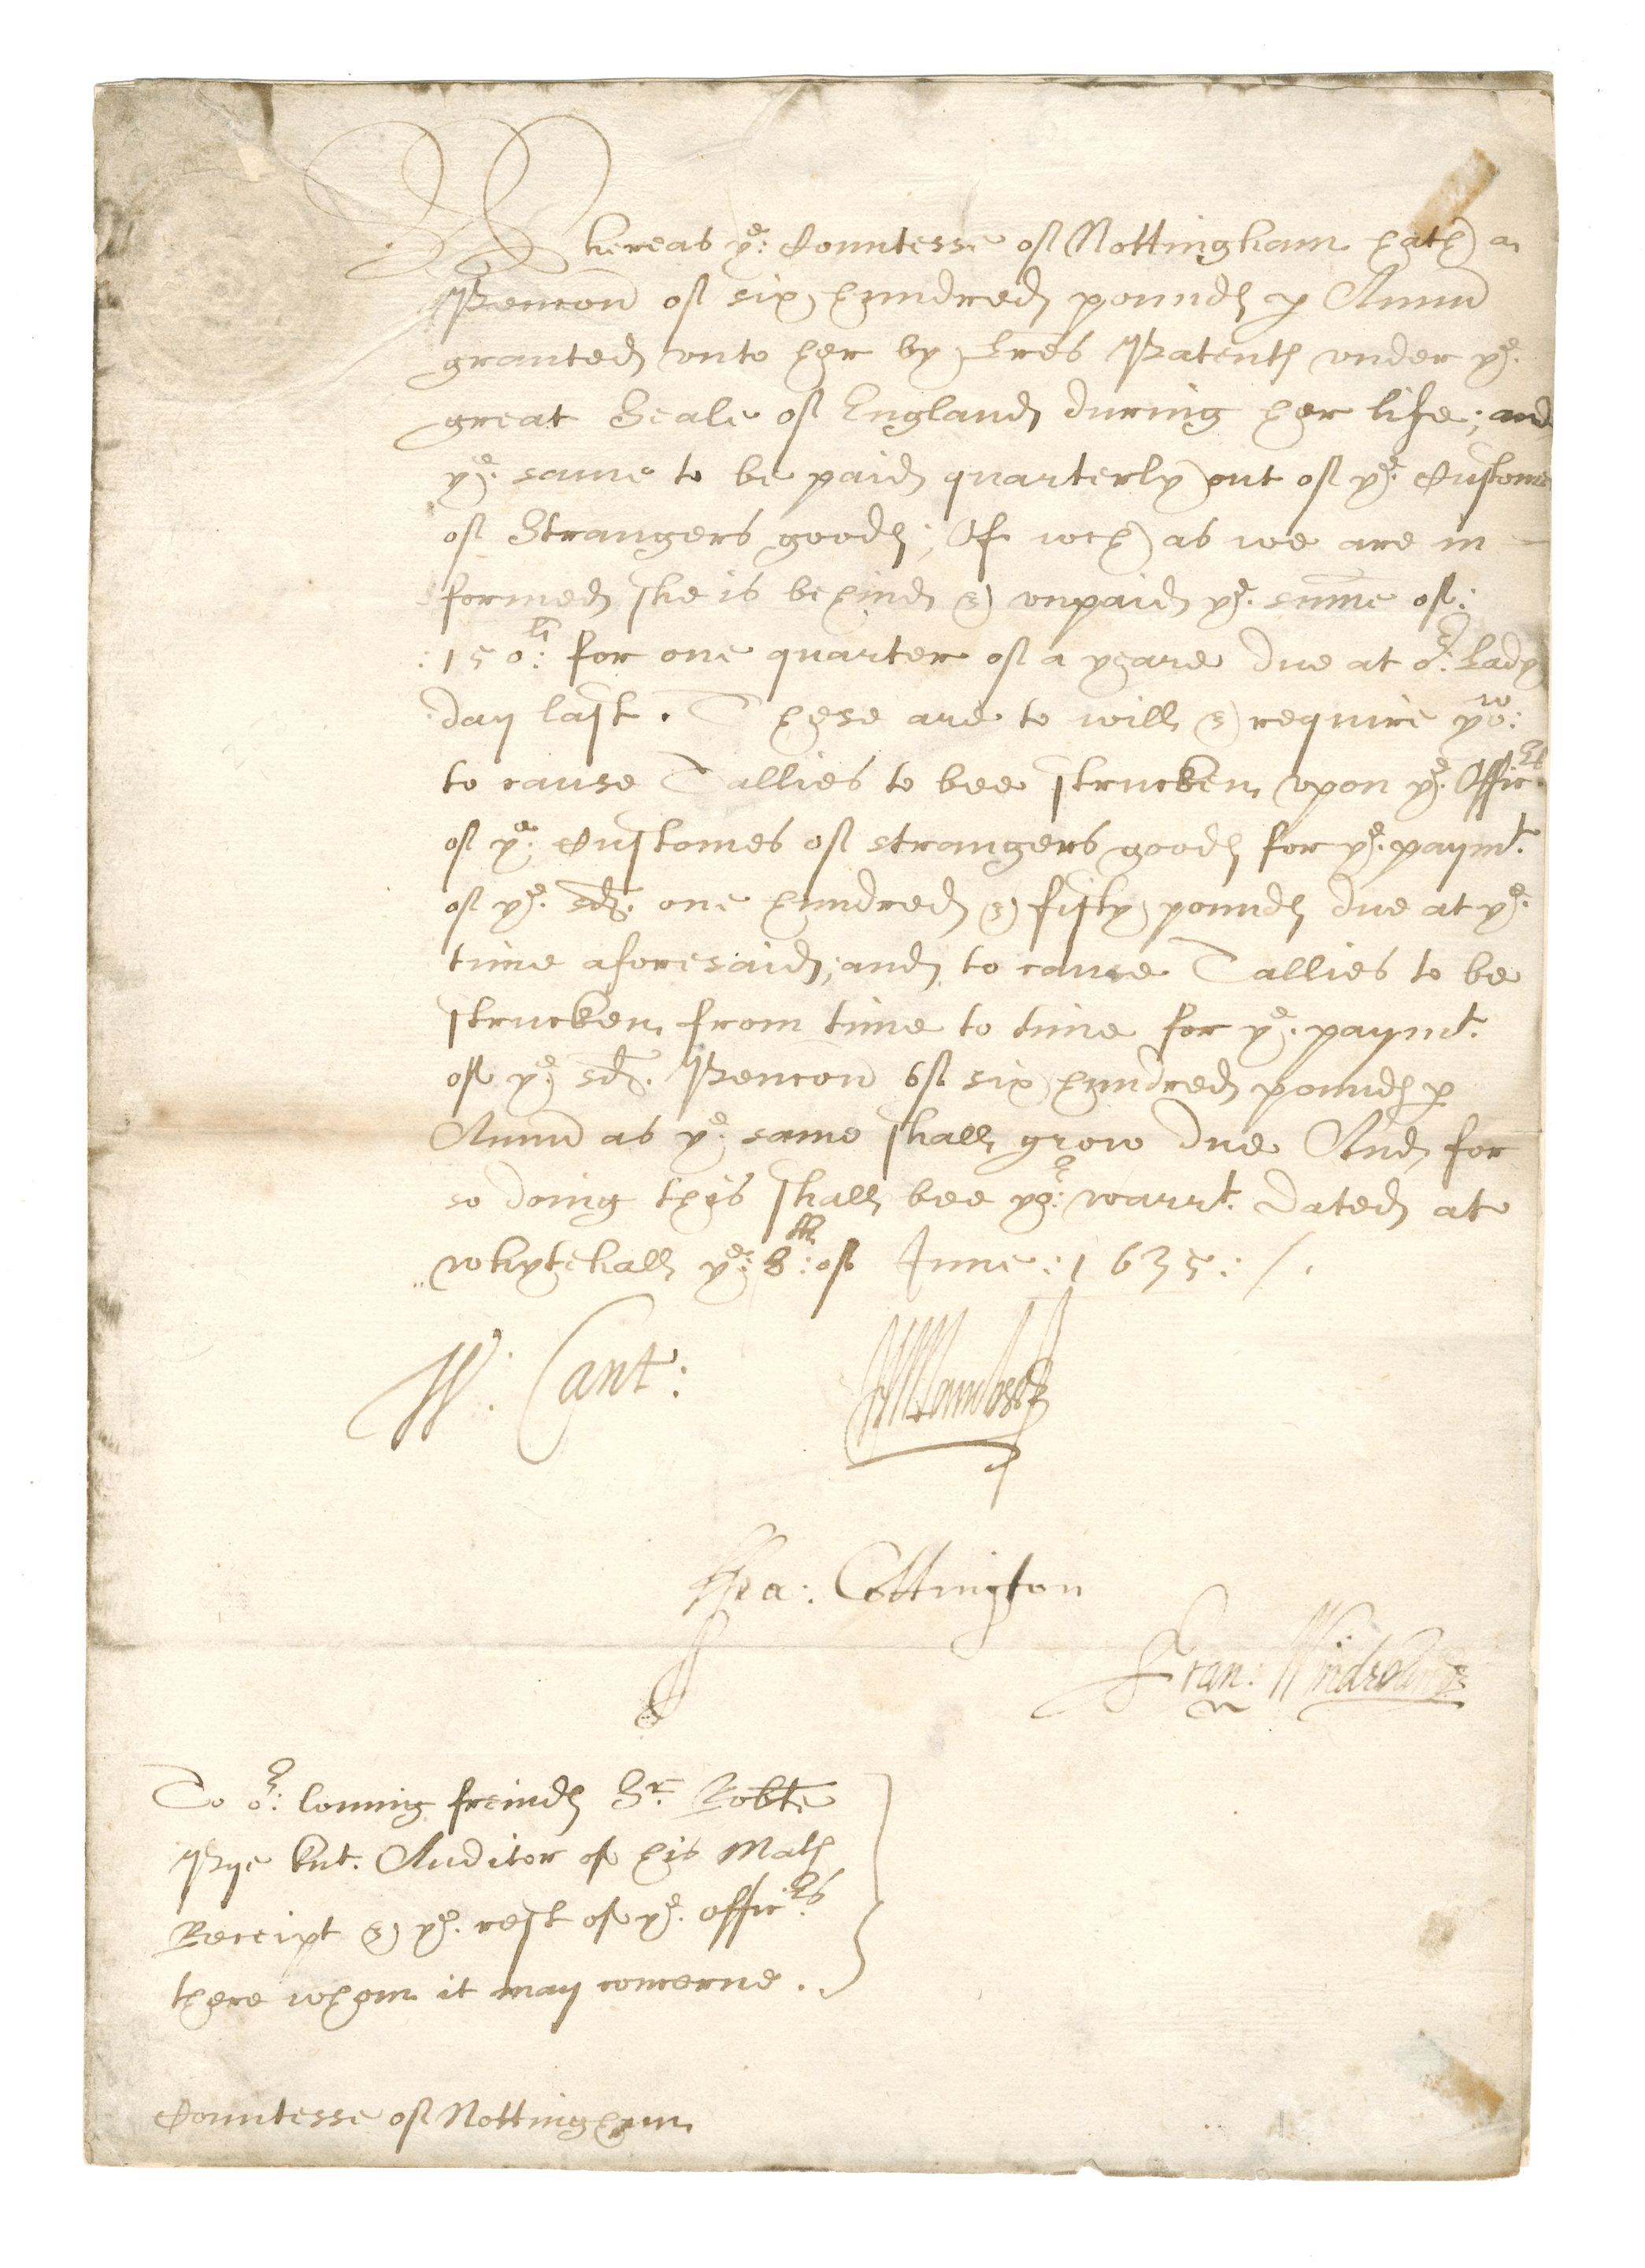 Whereas ye: Countesse of Nottingham hath a
Pencon of six hundred pounds p Annu
granted vnto her by Lres Patents vnder ye.
great Seale of England during her life; and
ye. same to be paid quarterly out of ye. Custome
of Strangers goods; Of wch as we are in
formed she is behind & vnpaid ye. sume of:
:150li: for one quarter of a yeare due at or: Lady
day last. These are to will & require yow:
to cause Tallies to bee strucken vpon ye. Officrs.
of ye. Customes of strangers goods for ye. paymt.
of ye. sd. one hundred & fifty pounds due at ye.
time aforesaid; and to cause Tallies to be
strucken from time to time for ye. paymt.
of ye. sd. Pencon of six hundred pounds p
Annu as ye. same shall grow due And for
so doing this shall bee yor: warrt. Dated at
whytehall ye: 8th: of June: 1635: /.
W: Cant:
ffra: Cottington
Fran: Windebank
To or: louing freinds Sr. Robte
Pye knt. Auditor of his Mats
Receipt & ye. rest of ye. officrs.
there whom it may concerne.
Countesse of Nottingham